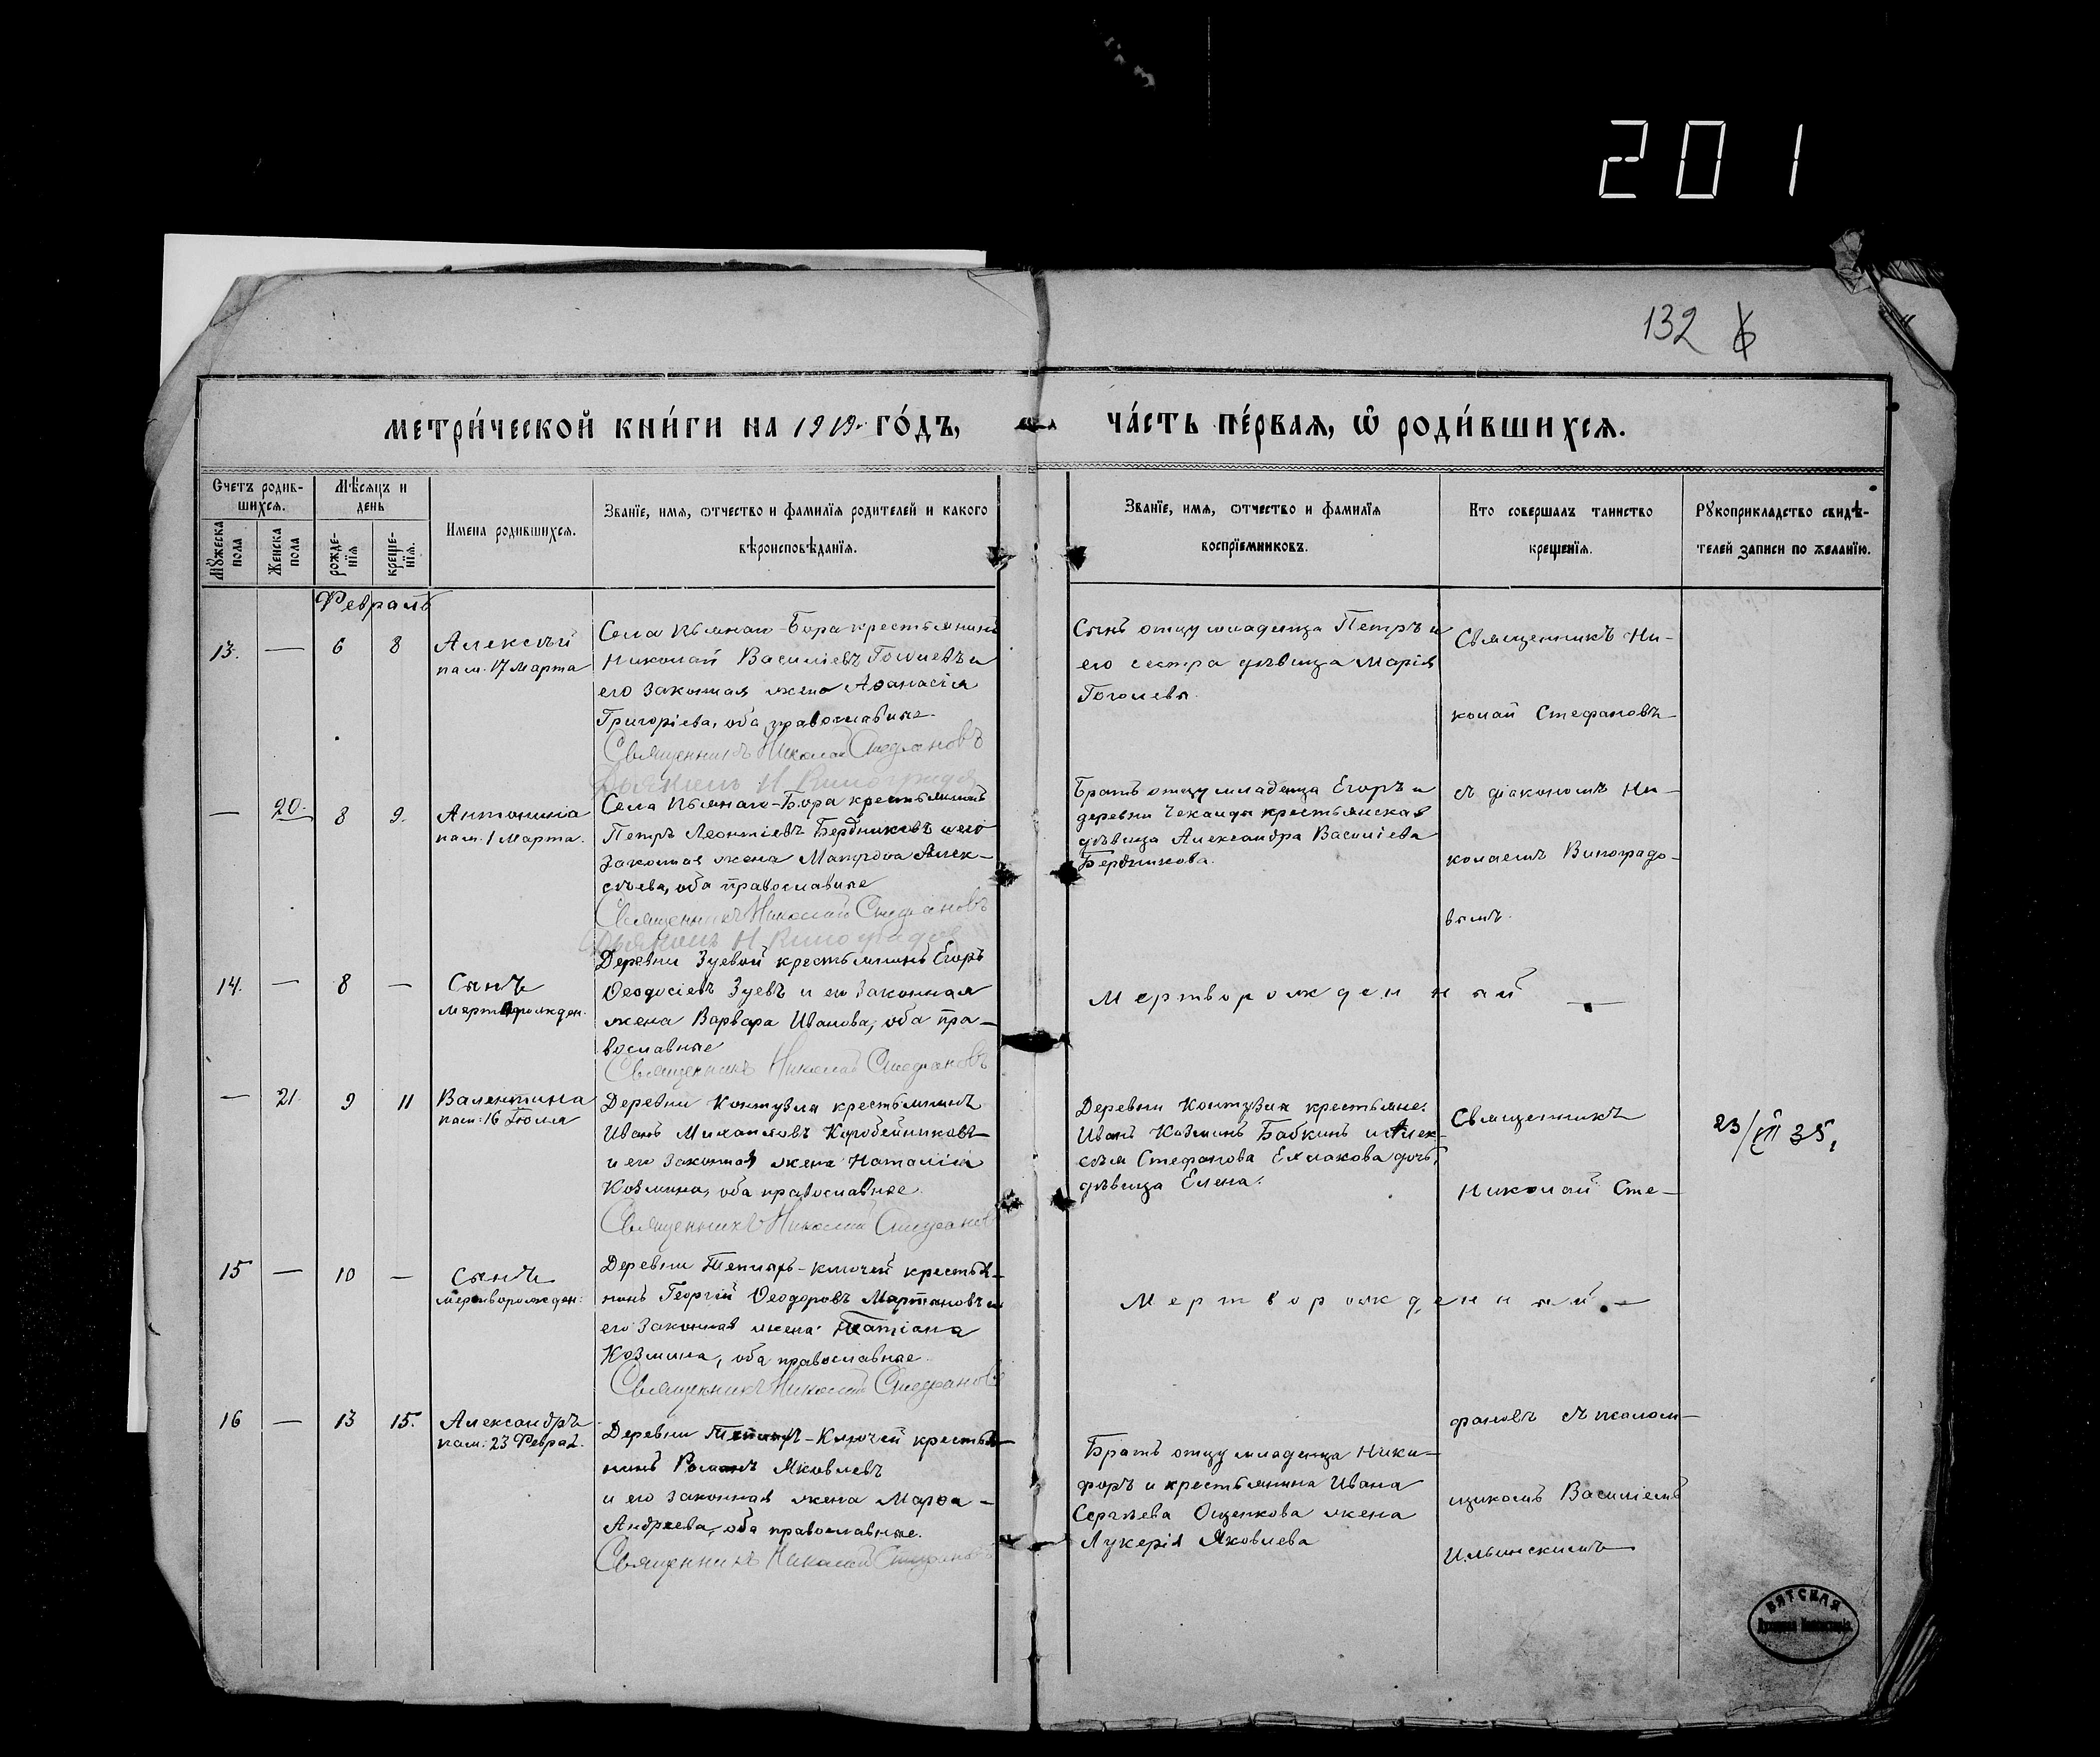 201
132
МЕТРИ́ЧЕСКОЙ КНИ́ГИ НА 1919 ГО́ДЪ,
ЧА́СТЬ ПЕ́РВАЯ, Ѡ РОДИ́ВШИХСѦ.
Счетъ родив-
шихсѧ.
Мѣсѧцъ и
день
Мужеска пола
Женска пола
рожде-
нїѧ
креще-
нїѧ.
Имена родившихсѧ.
Званїе, имѧ, ѿчество и фамилїѧ родителей и какого
вѣроисповѣданїѧ.
Званїе, имѧ, ѿчество и фамилїѧ
воспрїемниковъ.
Кто совершалъ таинство
крещенїѧ.
Рукоприкладство свидѣ-
телей записи по желанїю.
Февраль
13. — 6 8
Алексѣй
пам. 17 Марта
Села Пьянаго-Бора крестьянинъ
Николай Василіевъ Гоголевъ и
его законная жена Аѳанасія
Григоріева, оба православные.
Священникъ Николай Стефановъ
Дьяконъ Н. Виноградов
Сынъ отцу младенца Петръ и
его сестра дѣвица Марія
Гоголевы.
Священникъ Ни-
колай Стефановъ
— 20. 8 9.
Антонина
пам. 1 Марта.
Села Пьянаго-Бора крестьянинъ
Петръ Леонтіевъ Бердниковъ и его
законная жена Матрона Алек-
сѣева, оба православные
Священникъ Николай Стефановъ
Дьяконъ Н. Виноградов
Братъ отцу младенца Егоръ и
деревни Чеканды крестьянская
дѣвица Александра Василіева
Бердникова.
съ діакономъ Ни-
колаемъ Виноградо-
вымъ.
14. — 8 —
Сынъ
мертворожден.
Деревни Зуевой крестьянинъ Егоръ
Ѳеодосіевъ Зуевъ и его законная
жена Варвара Иванова, оба пра-
вославные
Священникъ Николай Стефановъ
Мертворожденный —
— 21. 9 11
Валентина
пам. 16 Іюля
Деревни Контузла крестьянинъ
Иванъ Михаиловъ Коробейниковъ
и его законная жена Наталія
Козмина, оба православные.
Священникъ Николай Стефановъ
Деревни Контузла крестьяне:
Иванъ Козминъ Бабкинъ и Алек-
сѣя Стефанова Ехлакова дочь,
дѣвица Елена.
Священникъ
Николай Сте-
23/VII 35,
15 — 10 —
Сынъ
мертворожден:
Деревни Тепляръ-Ключей крестья-
нинъ Георгій Ѳеодоровъ Мартыновъ и
его законная жена Татіана
Козмина, оба православные.
Священникъ Николай Стефановъ
Мертворожденный. —
16 — 13 15.
Александръ
пам: 23 Феврал.
Деревни -Ключей крестья-
нинъ Романъ Яковлевъ
и его законная жена Марѳа
Андреева, оба православные.
Священникъ Николай Стефановъ
Братъ отцу младенца Ники-
форъ и крестьянина Ивана
Сергѣева Ощепкова жена
Лукерія Яковлева
фановъ съ псалом-
щикомъ Василіемъ
Ильинскимъ
ВЯТСКАЯ
Духовная Консисторія